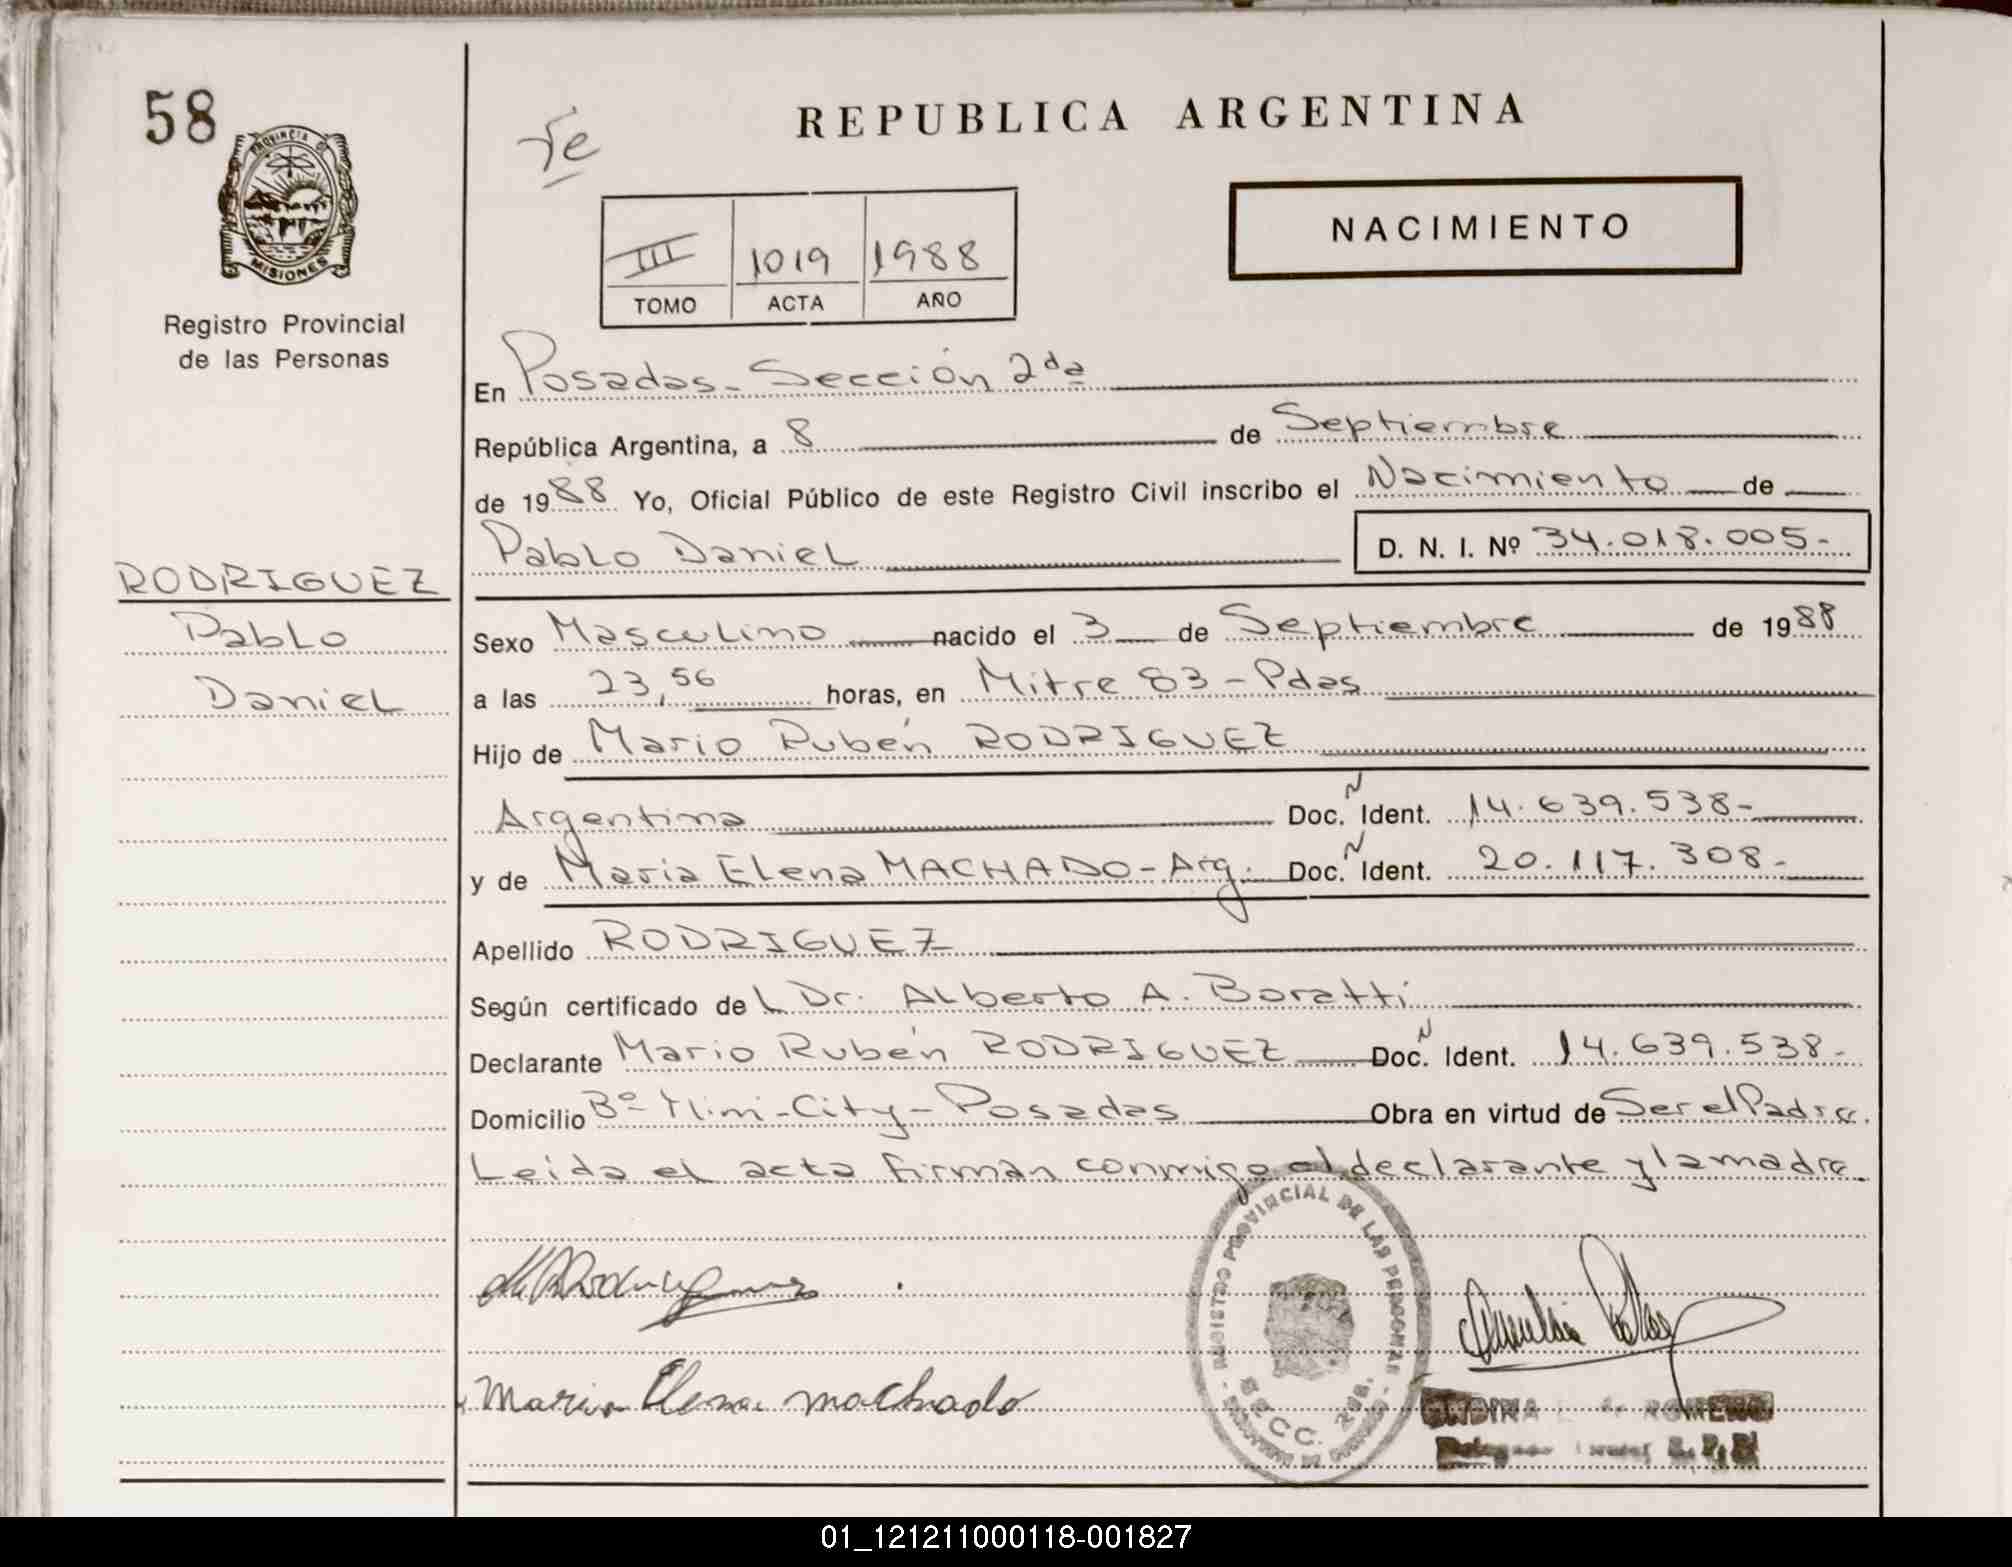 58
PROVINCIA DE
MISIONES
Registro Provincial
de las Personas
RODRIGUEZ
Pablo
Daniel
REPUBLICA ARGENTINA
NACIMIENTO
III 1019 1988
TOMO ACTA AÑO
En Posadas - Sección 2da
República Argentina, a 8 de Septiembre
de 1988 Yo, Oficial Público de este Registro Civil inscribo el Nacimiento de
Pablo Daniel D. N. I. Nº 34.018.005-
Sexo Masculino nacido el 3 de Septiembre de 1988
a las 23,56 horas, en Mitre 83 - Pdas
Hijo de Mario Rubén RODRIGUEZ
Argentina Doc. N Ident. 14.639.538-
y de Maria Elena MACHADO - Arg. Doc. N Ident. 20.117.308-
Apellido RODRIGUEZ
Según certificado del Dr. Alberto A. Boratti
Declarante Mario Rubén RODRIGUEZ Doc. N Ident. 14.639.538-
Domicilio Bº Mini-City - Posadas Obra en virtud de Ser el Padre.
Leida el acta firman conmigo el declarante y la madre.
REGISTRO PROVINCIAL DE LAS PERSONAS
SECC. 2da.
Maria Elena machado
ROMERO
01_121211000118-001827